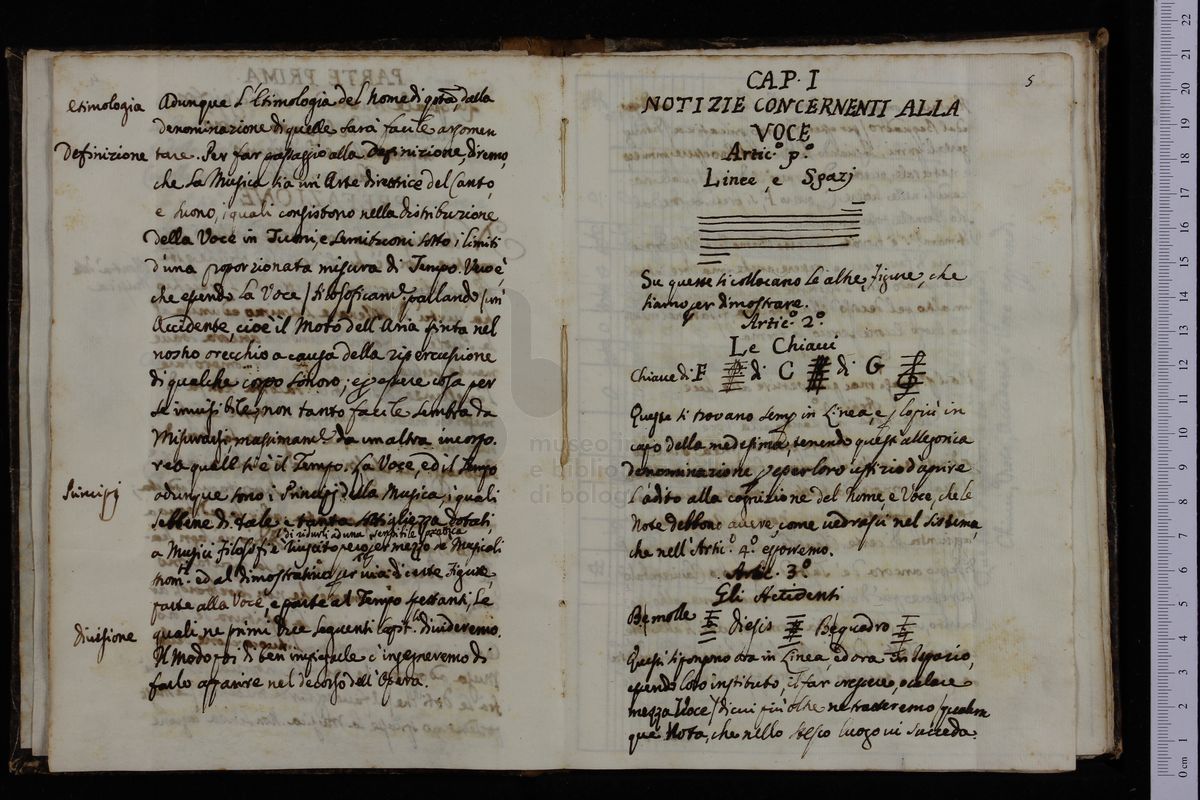 Etimologia
Definizione
Principj
Divisione
Adunque l'Etimologia del Nome di questa, dalla
denominazione di quelle sarà facile argomen
tare. Per far passaggio alla Definizione, diremo,
che la Musica sia un'Arte direttrice del Canto,
e suono, i quali consistono nella distribuzione
della Voce in Tuoni, e Semituoni sotto i limiti
d'una proporzionata misura di Tempo. Vero è,
che essendo la Voce / filosoficamte. parlando / un'
Accidente, cioè il Moto dell'Aria spinta nel
nostro orecchio a causa della ripercussione
di qualche corpo sonoro; ed essere cosa per
se invisibile; non tanto facile sembra da
Misurarsi, massimame. da un altra incorpo.
rea quall si è il Tempo. La Voce, ed il Tempo
adunque sono i Principj della Musica, i quali
sebbene di tale e tanta sottigliezza dotati,
di ridurli ad una sensibile prattica
a Musici Filosofi è riuscito per mezzo de Musicali
nomi. ed al dimostrativa per via di certe Figure,
parte alla Voce, e parte al Tempo spettanti, Le
quali ne primi due seguenti Capit.li divideremo.
Il Modo poi di ben impiegarle c'ingegneremo di
farlo apparire nel decorso dell'Opera.
5
CAP. I
NOTIZIE CONCERNENTI ALLA
VOCE
Artic.o p.o
Linee, e Spazj
Su queste si collocano le altre figure, che
siamo per dimostrare.
Artic.o 2.o
Le Chiavi
Chiave di F di C di G
Queste si trovano semp. in Linea, e p. lo più in
capo della medesima, tenendo questa allegorica
denominazione per loro uffizio d'aprire
l'àdito alla cognizione del Nome e Voce, che le
Note debbono avere, come vedrassi nel Sistema,
che nell'Artic.o 4.o esporremo.
Artic. 3.o
Gli Accidenti
Bemolle Diesis Bequadro
Questi si pongono ora in Linea, ed ora in Ispazio,
essendo loro instituto, il far crescere, o calare
mezza Voce / di cui più oltre ne tratteremo / qualun
que Nota, che nello stesso luogo vi succeda.
museo in
e biblio
di bolog